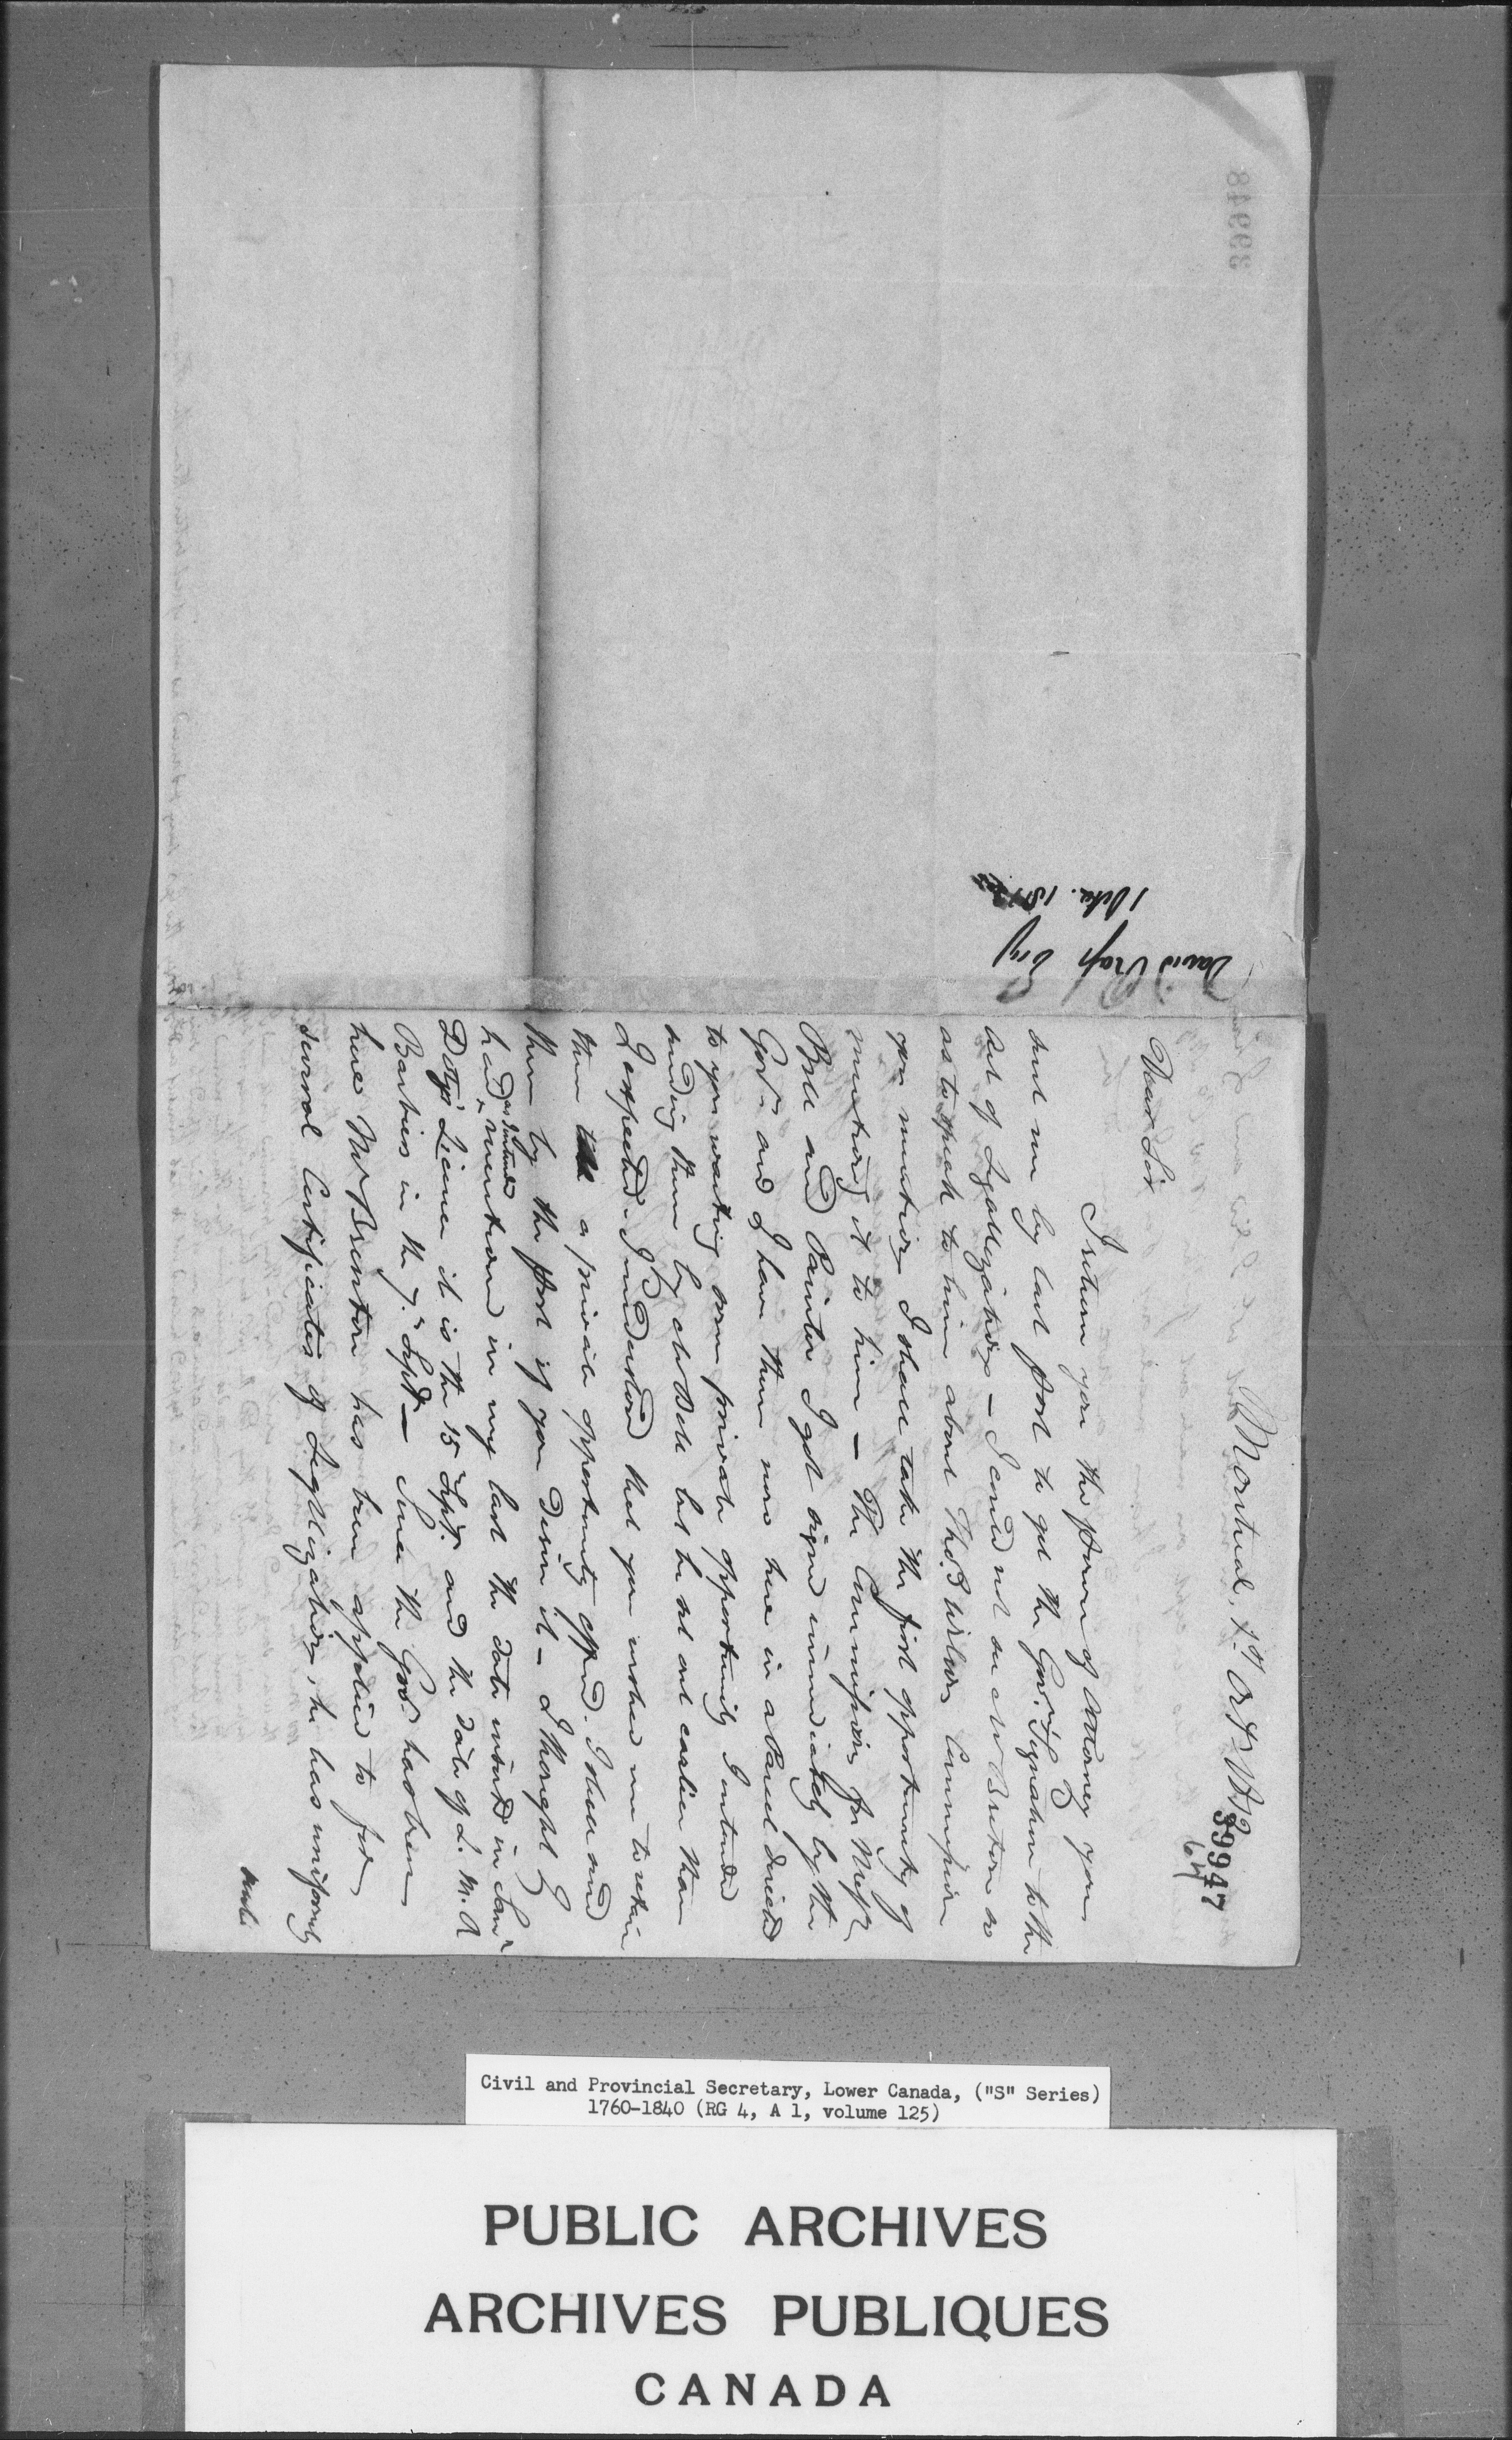 39947
64
Montreal, 1st Octr 1812
Dear Sir
I return you the power of Attorney you
sent me by last post to get the Govr's Signature to the
Act of Legallization — I could not see Mr Brenton so
as to speak to him about Thos. Wilsons Commission
you mention I shall take the first opportunity of
mentioning it to him — The Commissions for Messrs
Bell and Painter I got signed immediately by the
Govr and I have them now here in a Parcel directed
to you waiting some private opportunity I intended
sending them by Mr Bell but he set out earlier than
I expected. I understood that you wished me to retain
them a private opportunity offered. I shall send
them by the post if you desire it — I thought I
had as intended mentioned in my last the date inserted in
Doty's Licence it is the 15 Sept. and the date of L. M. A
Barbier is the 7th Sept — Since the Govr has been
here Mr Brenton has been applied to for
several Certificates of Legallization, he has uniformly
David Ross Esq
1 Octr. 1812
39948
Civil and Provincial Secretary, Lower Canada, ("S" Series)
1760-1840 (RG 4, A 1, volume 125)
PUBLIC ARCHIVES
ARCHIVES PUBLIQUES
CANADA